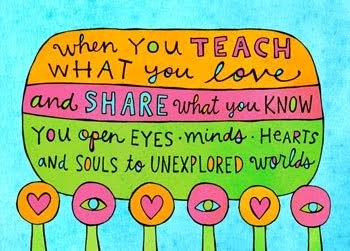 when YOU TEACH
WHAT YOU love
and SHARE what you KNOW
YOU open EYES • minds • HEARTS
and SOULS to UNEXPLORED worlds